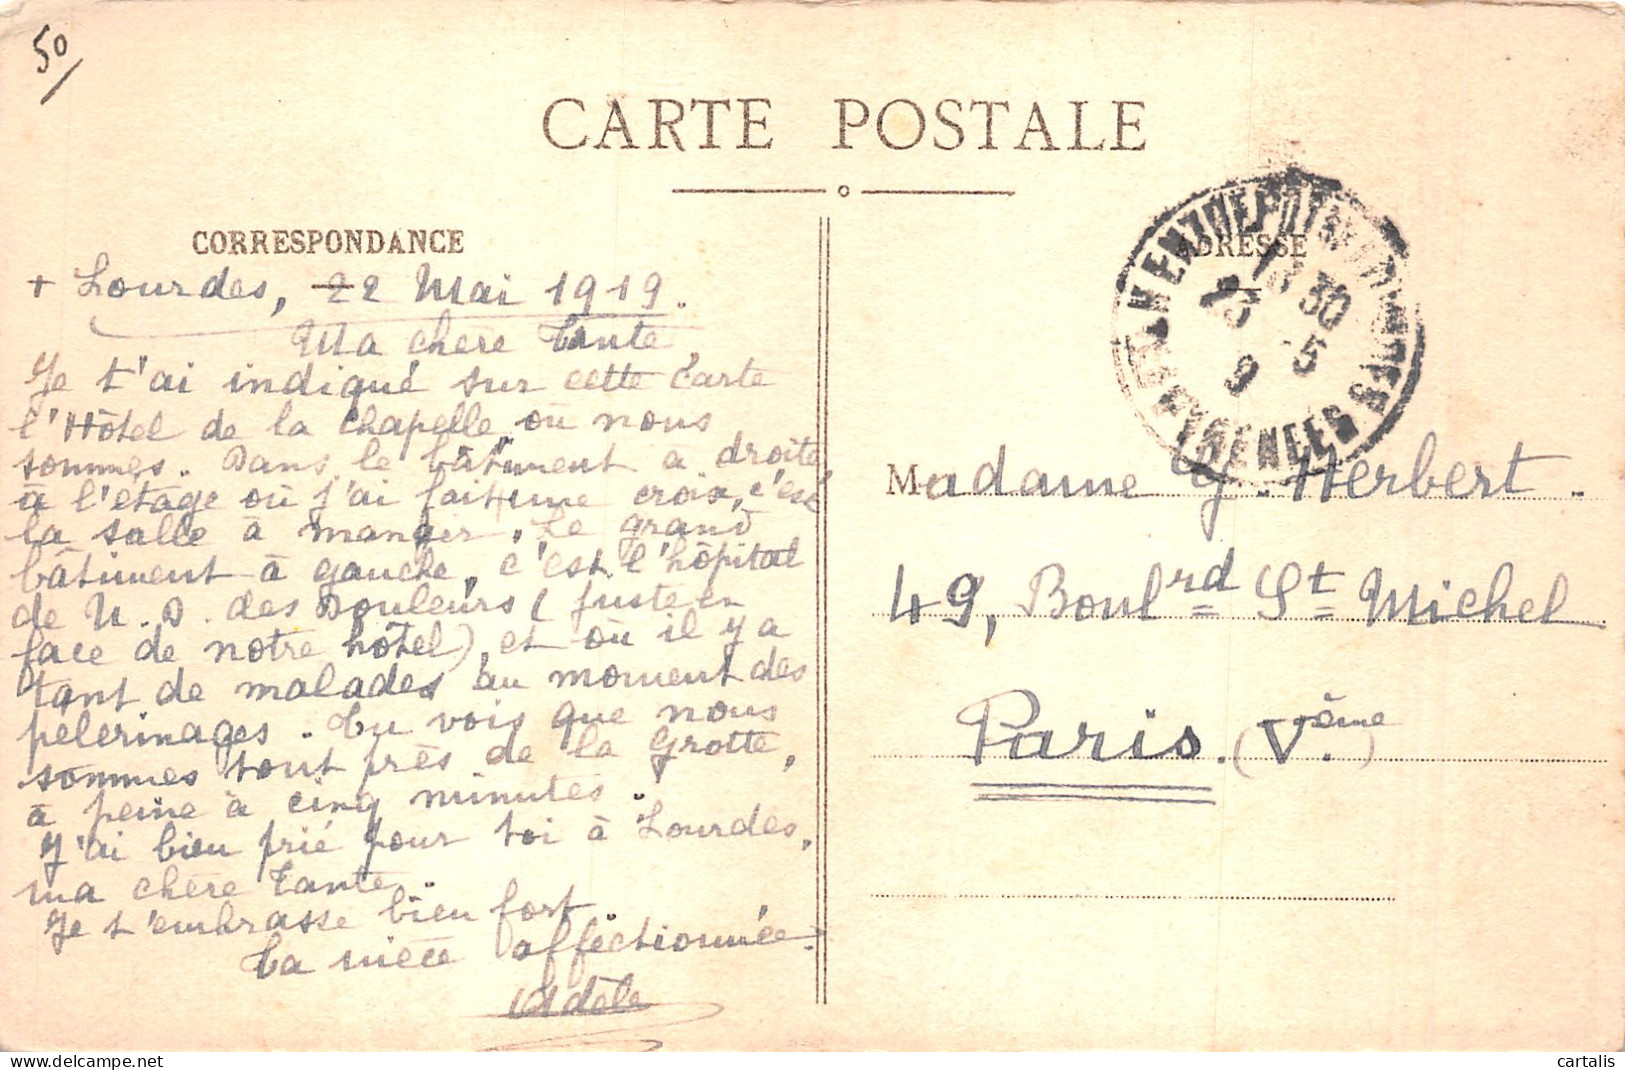 50/
CARTE POSTALE
CORRESPONDANCE
+ Lourdes, 22 Mai 1919.
Ma chère Tante,
Je t'ai indiqué sur cette carte
l'Hôtel de la Chapelle, où nous
sommes. Dans le bâtiment à droite,
à l'étage où j'ai fait une croix, c'est
la salle à manger. Le grand
bâtiment à gauche, c'est l'hôpital
de N. D. des Douleurs (juste en
face de notre hôtel), et où il y a
tant de malades au moment des
pélerinages. Tu vois que nous
sommes tout près de la Grotte,
à peine à cinq minutes.
J'ai bien prié pour toi à Lourdes,
ma chère Tante.
Je t'embrasse bien fort.
Ta nièce affectionnée.
Adèle
ADRESSE
30
5
9
PYRENEES
Madame G. Herbert.
49, Boulrd St Michel
Paris. (Vème)
cartalis